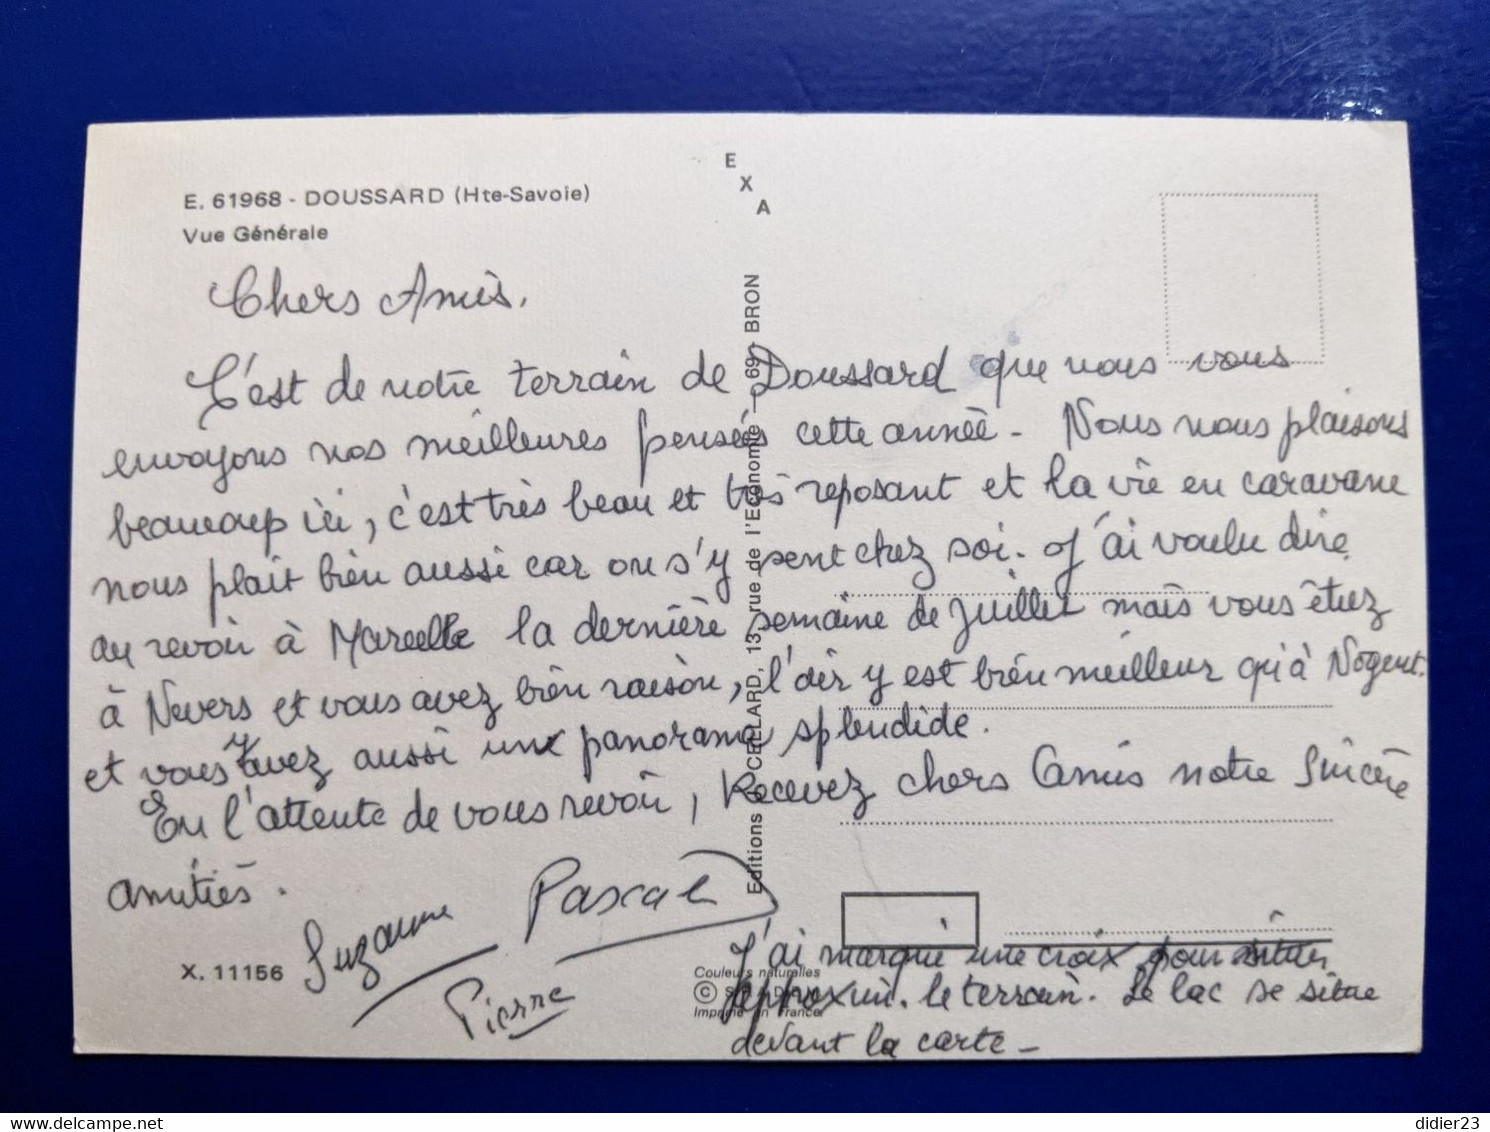 E. 61968 - DOUSSARD (Hte-Savoie)
Vue Générale
E
X
A
Editions CELLARD, 13, rue de l'Economie — 69 - BRON
Chers Amis,
C'est de notre terrain de Doussard que nous vous
envoyons nos meilleures pensées cette année - Nous nous plaisons
beaucoup ici, c'est très beau et très reposant et la vie en caravane
nous plait bien aussi car on s'y sent chez soi. J'ai voulu dire
au revoir à Marcelle la dernière semaine de Juillet mais vous êtiez
à Nevers et vous avez bien raison, l'air y est bien meilleur qu'à Nogent.
et vous y avez aussi un panorama splendide.
En l'attente de vous revoir, Recevez chers Amis notre Sincère
amitiés.
Suzanne Pascal
Pierre
X. 11156
Couleurs naturelles
Imprimé en France
J'ai marqué une croix pour situer
approxim. le terrain. Le lac se situe
devant la carte -
didier23